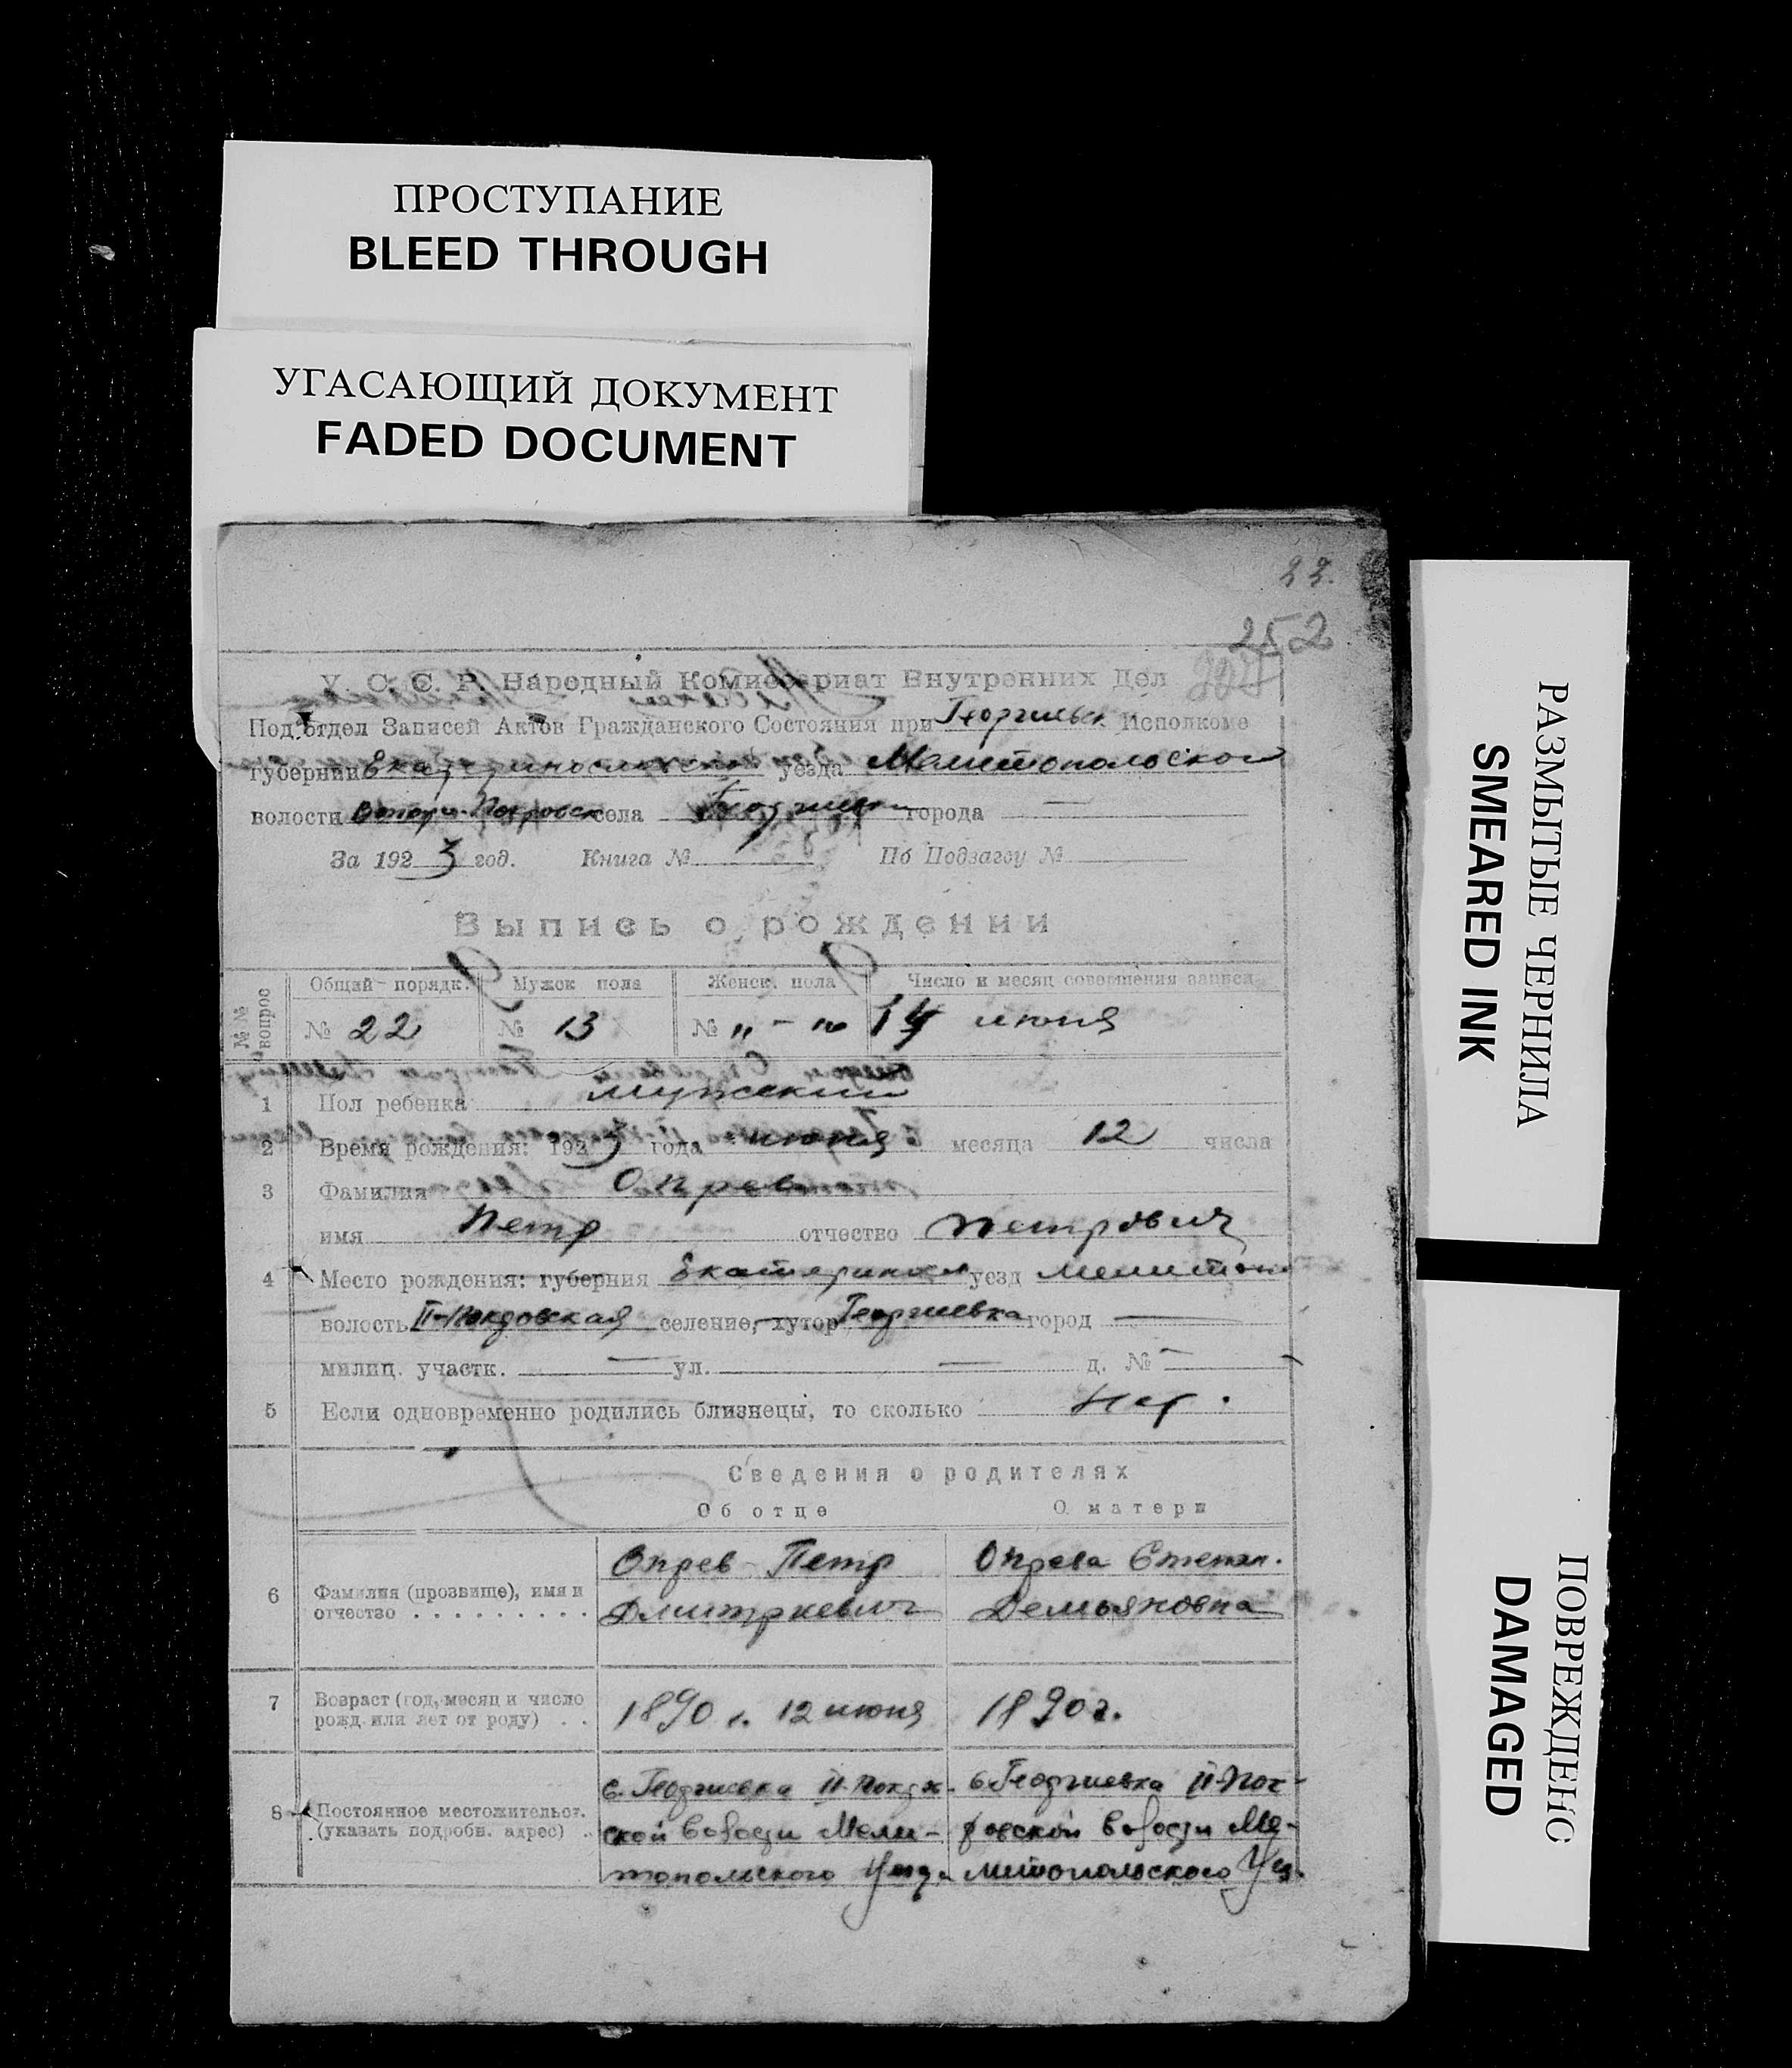 ПРОСТУПАНИЕ
BLEED THROUGH
УГАСАЮЩИЙ ДОКУМЕНТ
FADED DOCUMENT
252
У. С. С. Р. Народный Комиссариат Внутренних Дел
Под'отдел Записей Актов Гражданского Состояния при Георгиевск Исполкоме
губернии Екатеринославской уезда Мелитопольской
волости Втори-Покровск села города —
За 1923 год. Книга № По Подзагсу №
Выпись о рождении
№№ вопрос
Общий порядк. Мужск пола Женск. пола Число и месяц совершения записи
№ 22 № 13 № „ – „ 14 июня
1 Пол ребенка мужский
2 Время рождения: 1923 года июня месяца 12 числа
3 Фамилия Опрев
имя Петр отчество Петрович
4 Место рождения: губерния уезд
волость II-Покровская селение, хутор Георгиевка город —
милиц. участк. — ул. — д. № —
5 Если одновременно родились близнецы, то сколько Нет.
Сведения о родителях
Об отце О матери
6 Фамилия (прозвище), имя и отчество . . . . . . . . .
Опрев Петр
Дмитриевич
Опрева Степан.
Демьяновна
7 Возраст (год, месяц и число рожд. или лет от роду) . .
1890 г. 12 июня
1890 г.
8 Постоянное местожительст. (указать подробн. адрес) .
с. Георгиевка II-Покров-
ской волости Мели-
топольского Уезда
с. Георгиевка II-Пок-
ровской волости Ме-
литопольского Уез.
РАЗМЫТЫЕ ЧЕРНИЛА
SMEARED INK
ПОВРЕЖДЕНО
DAMAGED